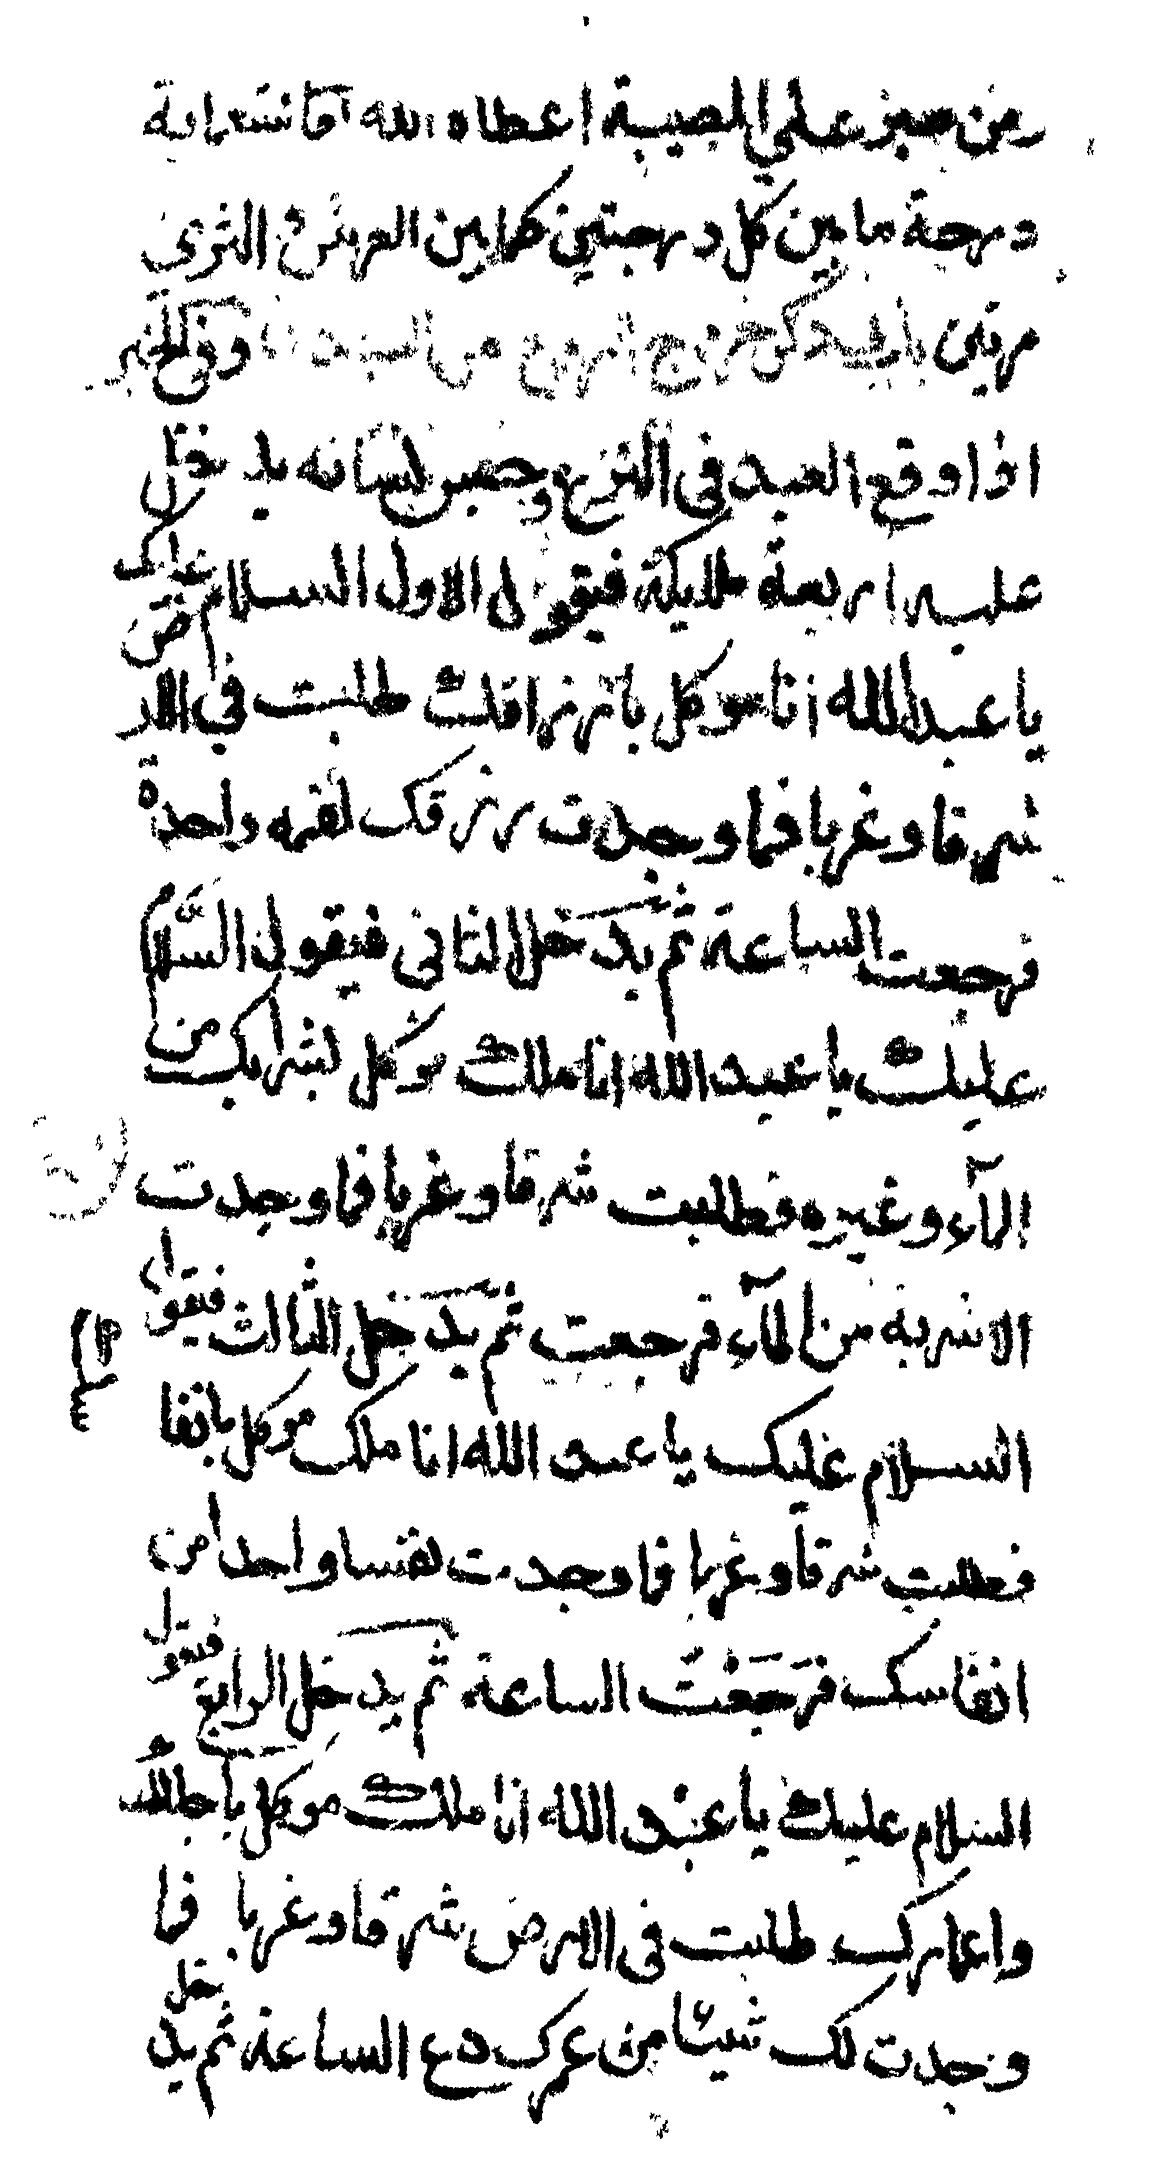 ومن صبر علي المصيبة اعطاه الله تعا تسعماية
درجة ما بين كل درجتين كما بين العرش الثري
مرتين باب في ذكر خروج الروح من البدن وفي الخبر
اذا وقع العبد في النزع وحبس لسانه يدخل
عليه اربعة ملايكة فيقول الاول السلام عليك
يا عبد الله انا موكل بارزاقك طلبت في الارض
شرقا وغربا فما وجدت رزقك لقمه واحدة
فرجعت الساعة ثم يدخل الثاني فيقول السلام
عليك يا عبد الله انا ملك موكل بشرابك من
المآء وغيره فطلبت شرقا وغربا فما وجدت
الاشربة من المآء فرجعت ثم يدخل الثالث فيقول
السلام عليك يا عبد الله انا ملك موكل بانفا
فطلبت شرقا وغربا فما وجدت نفسا واحدا من
انفاسك فرجعت الساعة ثم يدخل الرابع فيقول
السلام عليك يا عبد الله انا ملك موكل بآجالك
واعمارك طلبت في الارض شرقا وغربا فما
وجدت لك شيئا من عمرك دع الساعة ثم يدخل